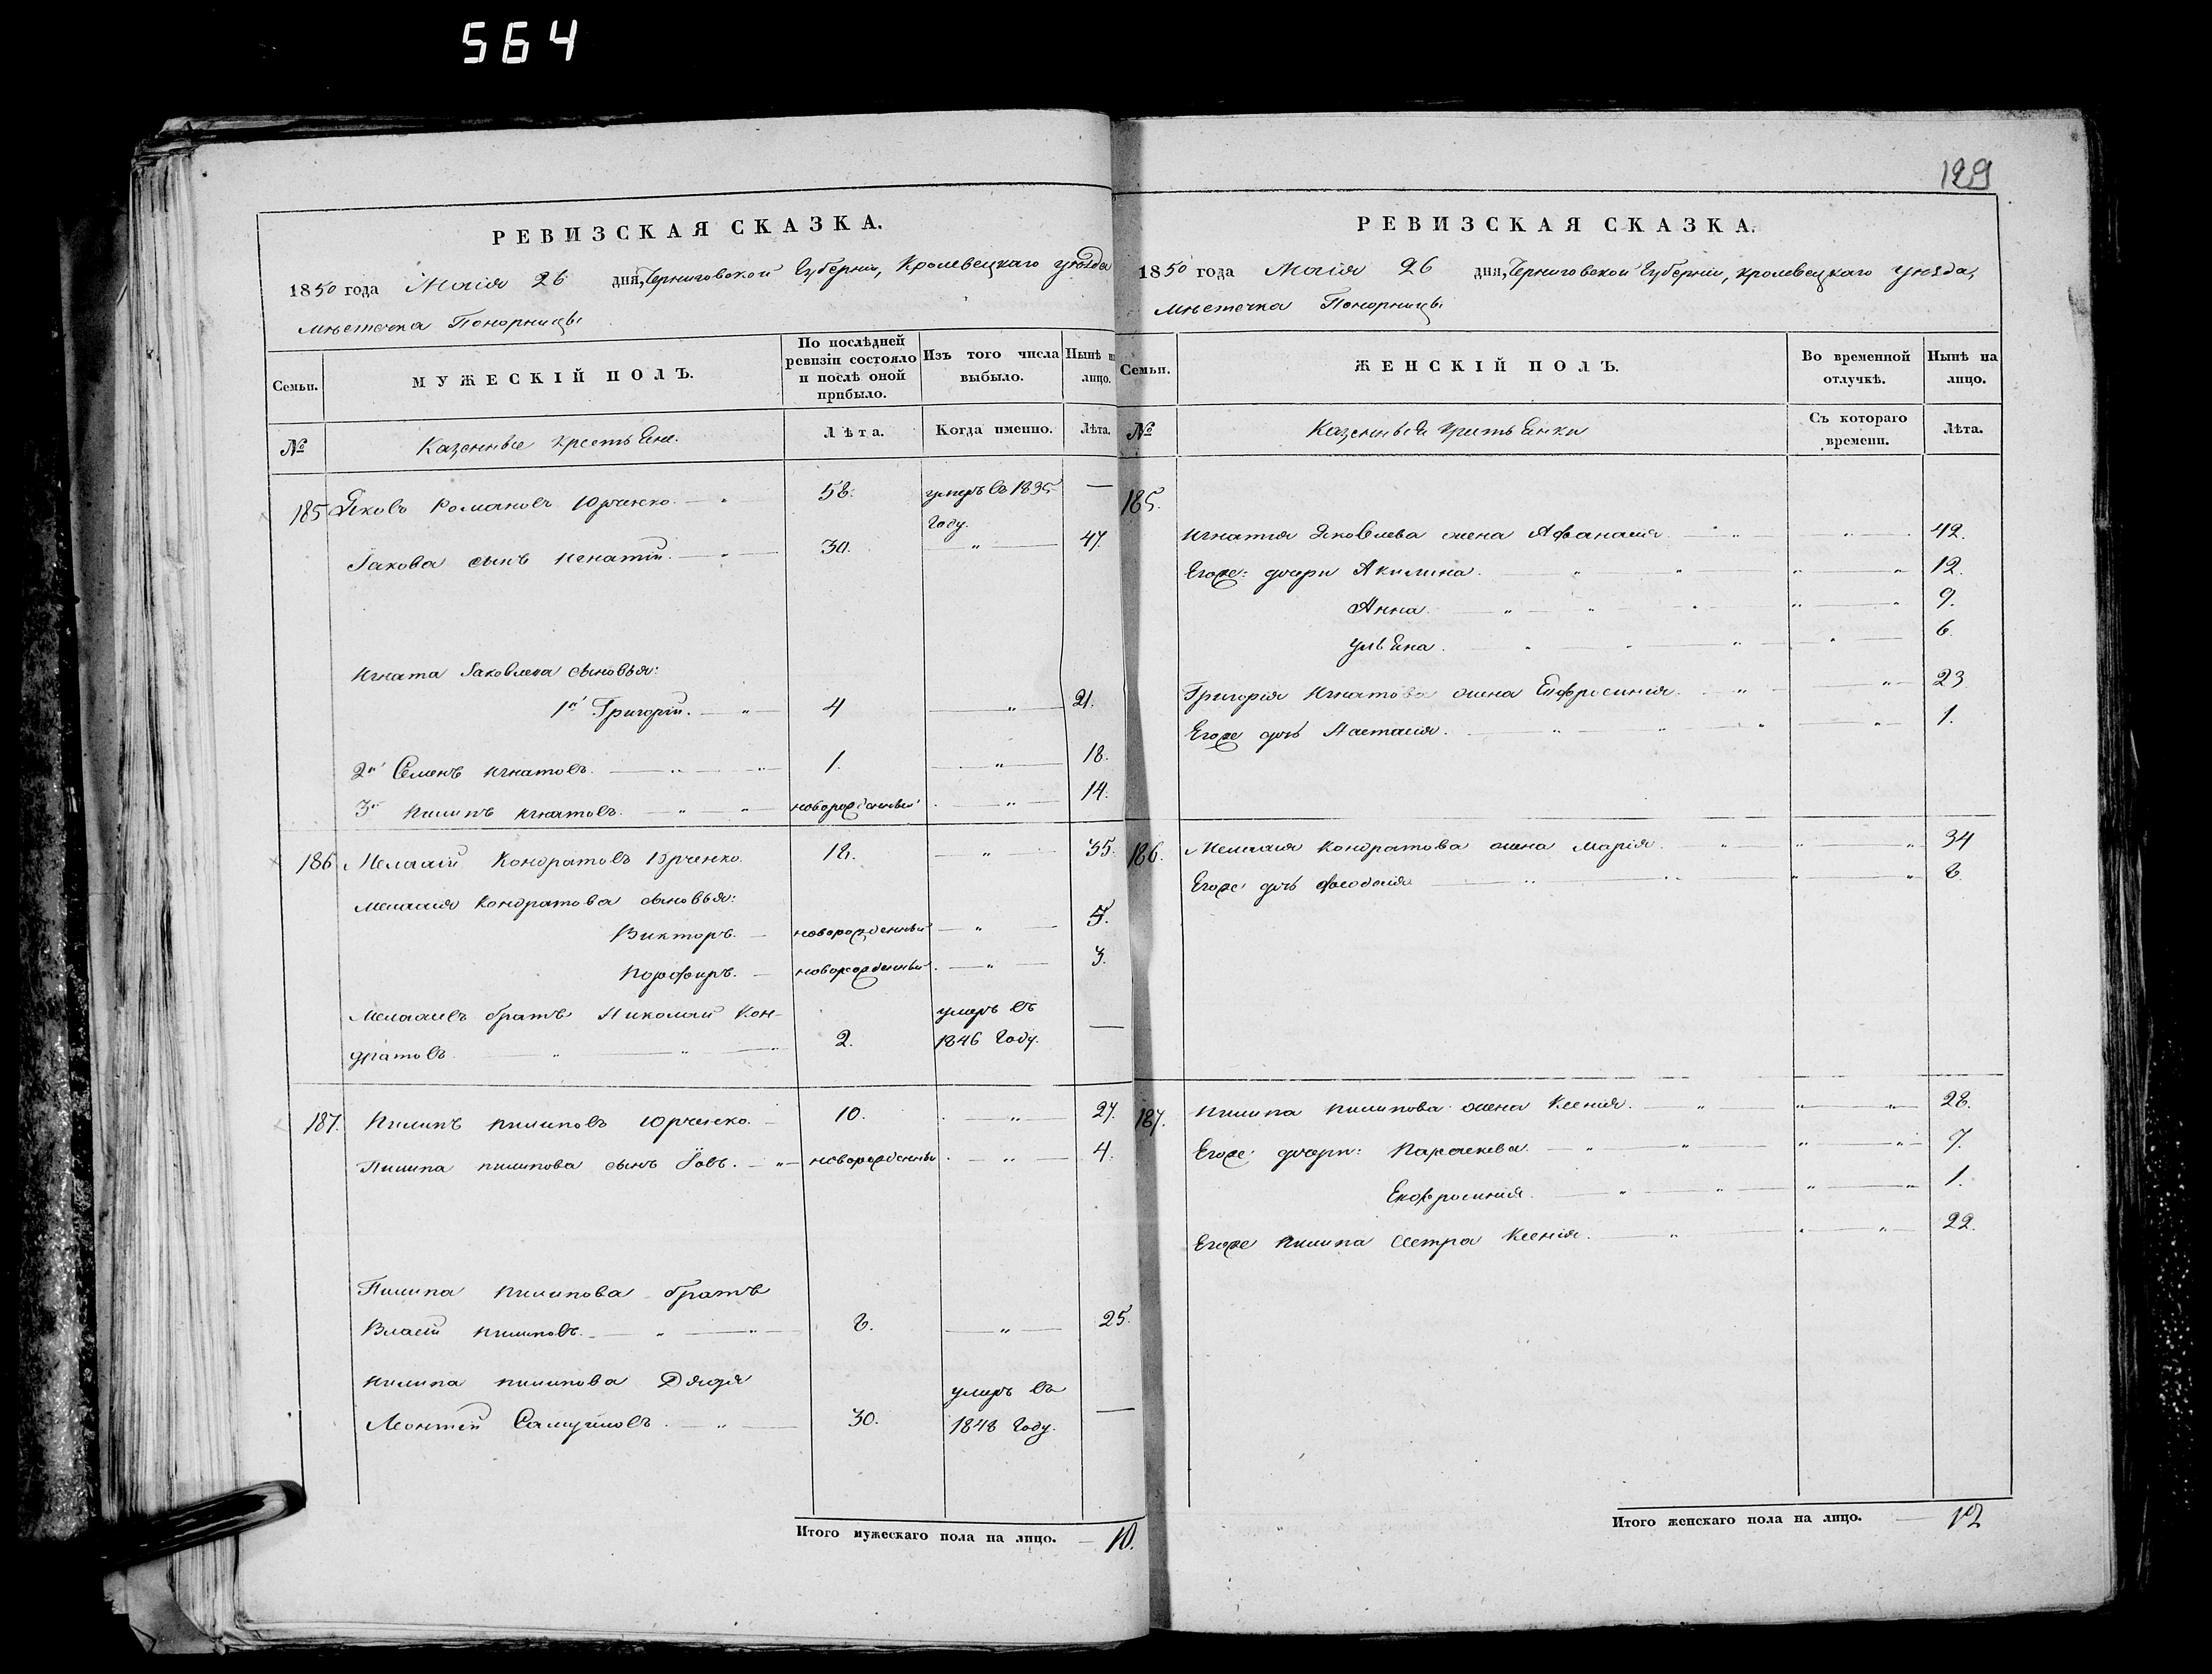 564
129
РЕВИЗСКАЯ СКАЗКА.
1850 года Маія 26 дня, Черниговской Губерніи, Кролевецкаго уѣзда
мѣстечка Понорницы
Семьи.
МУЖЕСКІЙ ПОЛЪ.
По послѣдней ревизіи состояло и послѣ оной прибыло.
Изъ того числа выбыло.
Нынѣ на лицо.
№
Казенные крестьяне.
Лѣта.
Когда именно.
Лѣта.
185 Яковъ Романовъ Юрченко. 58. умеръ въ 1835 —
Году.
Іакова сынъ Игнатій. 30. " 47.
Игната Іаковлева сыновья:
1й Григорій. 4 " 21.
2й Семенъ Игнатовъ. 1. " 18.
3й Пилипъ Игнатовъ. новорожденный " 14.
186 Мелалій Кондратовъ Юрченко. 18. " 35.
Мелалія Кондратова сыновья:
Викторъ. новорожденный " 5.
Порфиръ. новорожденный " 3.
Мелаліевъ братъ Николай Кон- умеръ въ
дратовъ. 2. 1846 Году. —
187. Пилипъ Пилиповъ Юрченко. 10. " 27.
Пилипа Пилипова сынъ Іовъ. новорожденный " 4.
Пилипа Пилипова братъ
Власій Пилиповъ. 8. " 25.
Пилипа Пилипова Дядя умеръ въ
Леонтій Самуиловъ. 30. 1848 Году. —
Итого мужескаго пола на лицо. — 10.
РЕВИЗСКАЯ СКАЗКА.
1850 года Маія 26 дня, Черниговской Губерніи, Кролевецкаго уѣзда,
мѣстечка Понорницы
Семьи.
ЖЕНСКІЙ ПОЛЪ.
Во временной отлучкѣ.
Нынѣ на лицо.
№
Казенныя крестьянки
Съ котораго времени.
Лѣта.
185.
Игнатія Яковлева жена Афанасія. " 42.
Егоже: дочери Акилина. " 12.
Анна. " 9.
Ульяна. " 6.
Григорія Игнатова жена Евфросинія. " 23
Егоже дочь Настасія. " 1.
186. Мелалія Кондратова жена Марія. " 34
Егоже дочь Феодосія " 8.
187. Пилипа Пилипова жена Ксенія. " 28.
Егоже дочери: Параскева. " 7.
Евфросинія. " 1.
Егоже Пилипа Сестра Ксенія. " 22.
Итого женскаго пола на лицо. — 12